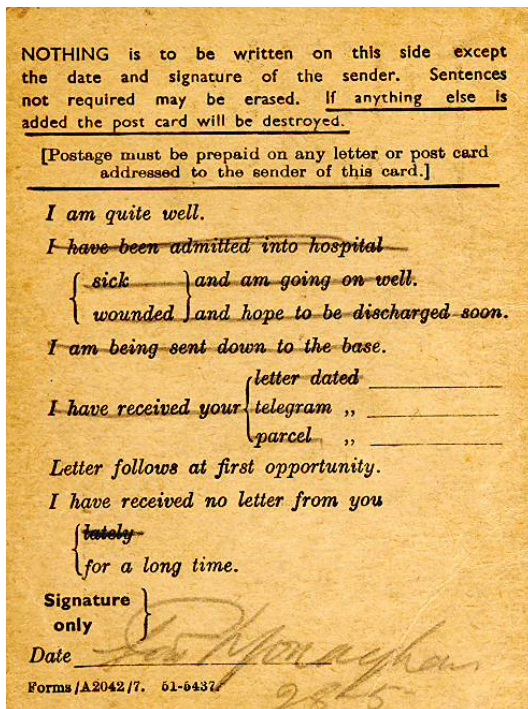 NOTHING is to be written on this side except
the date and signature of the sender. Sentences
not required may be erased. If anything else is
added the post card will be destroyed.
[Postage must be prepaid on any letter or post card
addressed to the sender of this card.]
I am quite well.
I have been admitted into hospital
sick and am going on well.
wounded and hope to be discharged soon.
I am being sent down to the base.
I have received your
letter dated
telegram ,,
parcel ,,
Letter follows at first opportunity.
I have received no letter from you
lately
for a long time.
Signature
only
Monaghan
Date
Forms/A2042/7. 51-5437.